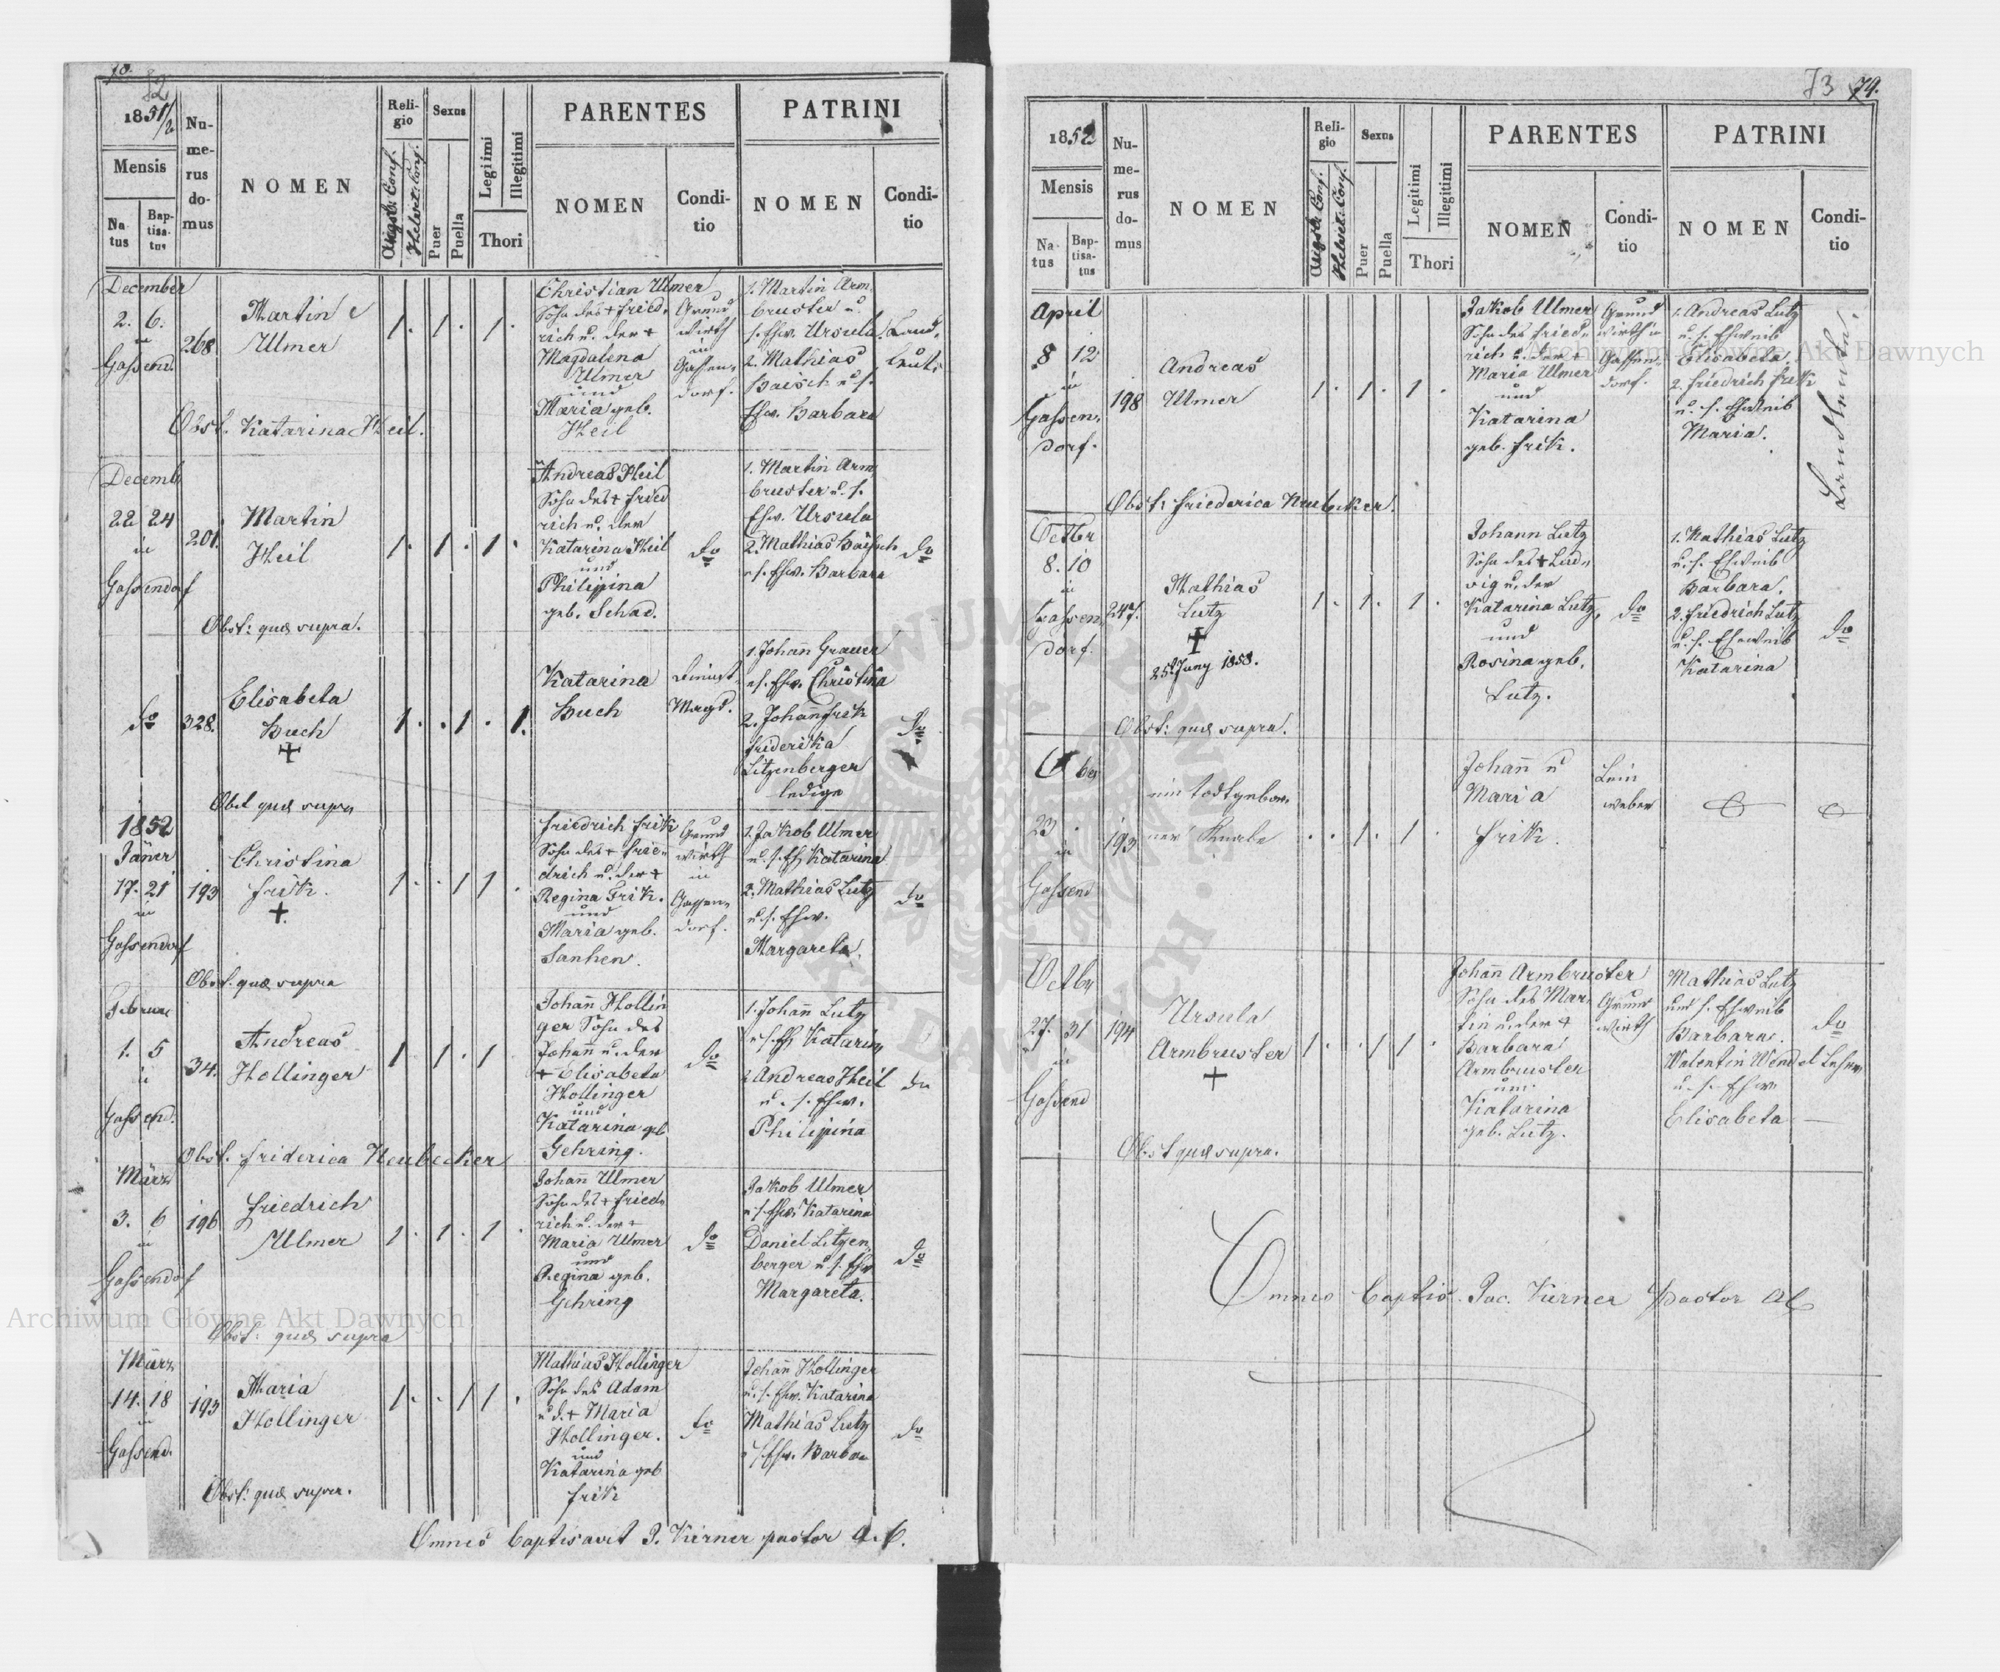 70.
82
1851/2
Mensis
Na
tus
Bap-
tisa-
tus
Nu-
me-
rus
do-
mus
NOMEN
Reli-
gio
Augsb. Conf.
Helvet. Conf.
Sexus
Puer
Puella
Legitimi
Illegitimi
Thori
PARENTES
NOMEN
Condi-
tio
PATRINI
NOMEN
Condi-
tio
December
2. 6.
in
Gassend.
268
Martin
Ulmer
1. 1. 1.
Christian Ulmer
Sohn des + Fried-
rich u. der +
Magdalena
Ulmer
und
Maria geb.
Heil
Grund
wirth
in
Gassen-
dorf.
1. Martin Arm
bruster u.
s. Ehw. Ursula
2. Mathias
Baesch u. s.
Ehw. Barbara
Land-
leute
Obst. Katarina Heil.
Decemb
22 24
in
Gassendorf
201.
Martin
Heil
1. 1. 1.
Andreas Heil
Sohn des + Fried
rich u. der
Katarina Heil
und
Philippina
geb. Schad.
do
1. Martin Arm
bruster u. s.
Ehw. Ursula
2. Mathias Baesch
u. s. Ehw. Barbara
do
Obst: quae supra.
do
328.
Elisabeta
Buch
+
1. 1. 1.
Katarina
Buch
Dienst-
Magd.
1. Johann Grauer
u. s. Ehw. Christina
2. Johann Frik
Friderika
Litzenberger
ledige
do
Obst quae supra
1852
Jäner
17. 21
in
Gassendorf
193
Christina
Frik.
+
1. 1 1
Friedrich Frik
Sohn des + Frie-
drich u. der +
Regina Frik.
und
Maria geb.
Sanhen.
Grund
wirth
in
Gassen-
dorf.
1. Jakob Ulmer
u. s. Eh Katarina
2. Mathias Lutz
u. s. Ehw.
Margareta.
do
Obst. quae supra
Februar
1. 5
in
Gassend.
34.
Andreas
Hollinger
1 1. 1
Johann Hollin
ger Sohn des
Johann u. der
+ Elisabeta
Hollinger
und
Katarina geb
Gehring.
do
1. Johann Lutz
u. s. Eh Katarina
2 Andreas Heil
u. s. Ehw.
Philippina
do
Obst. Friderica Neubecker
März
3. 6
in
Gassendorf
196
Friedrich
Ulmer
1. 1. 1.
Johann Ulmer
Sohn des + Fried-
rich u. der +
Maria Ulmer
und
Regina geb.
Gehring
do
Jakob Ulmer
u. s. Ehw. Katarina
Daniel Litzen
berger u. s. Ehw
Margareta.
do
Obst: quae supra
März
14. 18
in
Gassend.
193
Maria
Hollinger
1. 1 1
Mathias Hollinger
Sohn des Adam
u. d. + Maria
Hollinger.
und
Katarina geb
Frik
do
Johann Hollinger
u. s. Ehw. Katarina
Mathias Lutz
u. s. Ehw. Barbara
do
Obst: quae supra.
Omnes baptisavit J. Kierner pastor A. C.
73 79.
1852
Mensis
Na-
tus
Bap-
tisa-
tus
Nu-
me-
rus
do-
mus
NOMEN
Reli-
gio
Augsb. Conf.
Helvet. Conf.
Sexus
Puer
Puella
Legitimi
Illegitimi
Thori
PARENTES
NOMEN
Condi-
tio
PATRINI
NOMEN
Condi-
tio
April
8 12
in
Gassen-
dorf.
198
Andreas
Ulmer
1. 1. 1.
Jakob Ulmer
Sohn des Fried-
rich u. der +
Maria Ulmer
und
Katarina
geb. Frik.
Grund
wirth in
Gassen-
dorf.
1. Andreas Lutz
u. s. Eheweib
Elisabeta
2. Friedrich Frik
u. s. Eheweib
Maria.
Landleute.
Obst: Friederica Neubeker.
Octbr
8. 10
in
Gassen
dorf.
247.
Mathias
Lutz
+
25 Juny 1858.
1. 1. 1.
Johann Lutz
Sohn des + Lud-
wig u. der
Katarina Lutz,
und
Rosina geb.
Lutz.
do
1. Mathias Lutz
u. s. Eheweib
Barbara.
2. Friedrich Lutz
u. s. Eheweib
Katarina
do
Obst: quae supra.
23
in
Gassend
193
ein todtgebor-
ner Knabe
1. 1.
Johann u
Maria
Frik.
Lein
weber
Octbr
27. 31
in
Gassend
194
Ursula
Armbruster
+
1. 1 1
Johann Armbruster
Sohn des Mar-
tin u. der +
Barbara
Armbruster
und
Katarina
geb. Lutz.
Grund
wirth
Mathias Lutz
und s. Eheweib
Barbara.
Valentin Wendel
u. s. Ehw
Elisabeta
do
Obst quae supra.
Omnes baptis. Jac. Kierner Pastor AC
Archiwum Główne Akt Dawnych
Archiwum Główne Akt Dawnych